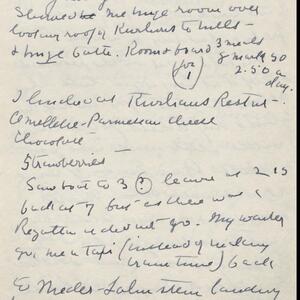 Showed me huge room over
looking roof of Kurhaus to hills -
& huge bath. Room & board 3 meals
(for 1) 9 marks 50
2.50 a
day.
I lunched at Kurhaus Restrt -
Omelette - Parmesan cheese
Chocolate -
Strawberries -
boat to 3 ? leave at 2 15
back at 7 but as there was a
Regatta it did not go. My waiter
got me a taxi (instead of
tram time) back
to Nieder-Lahnstein landing